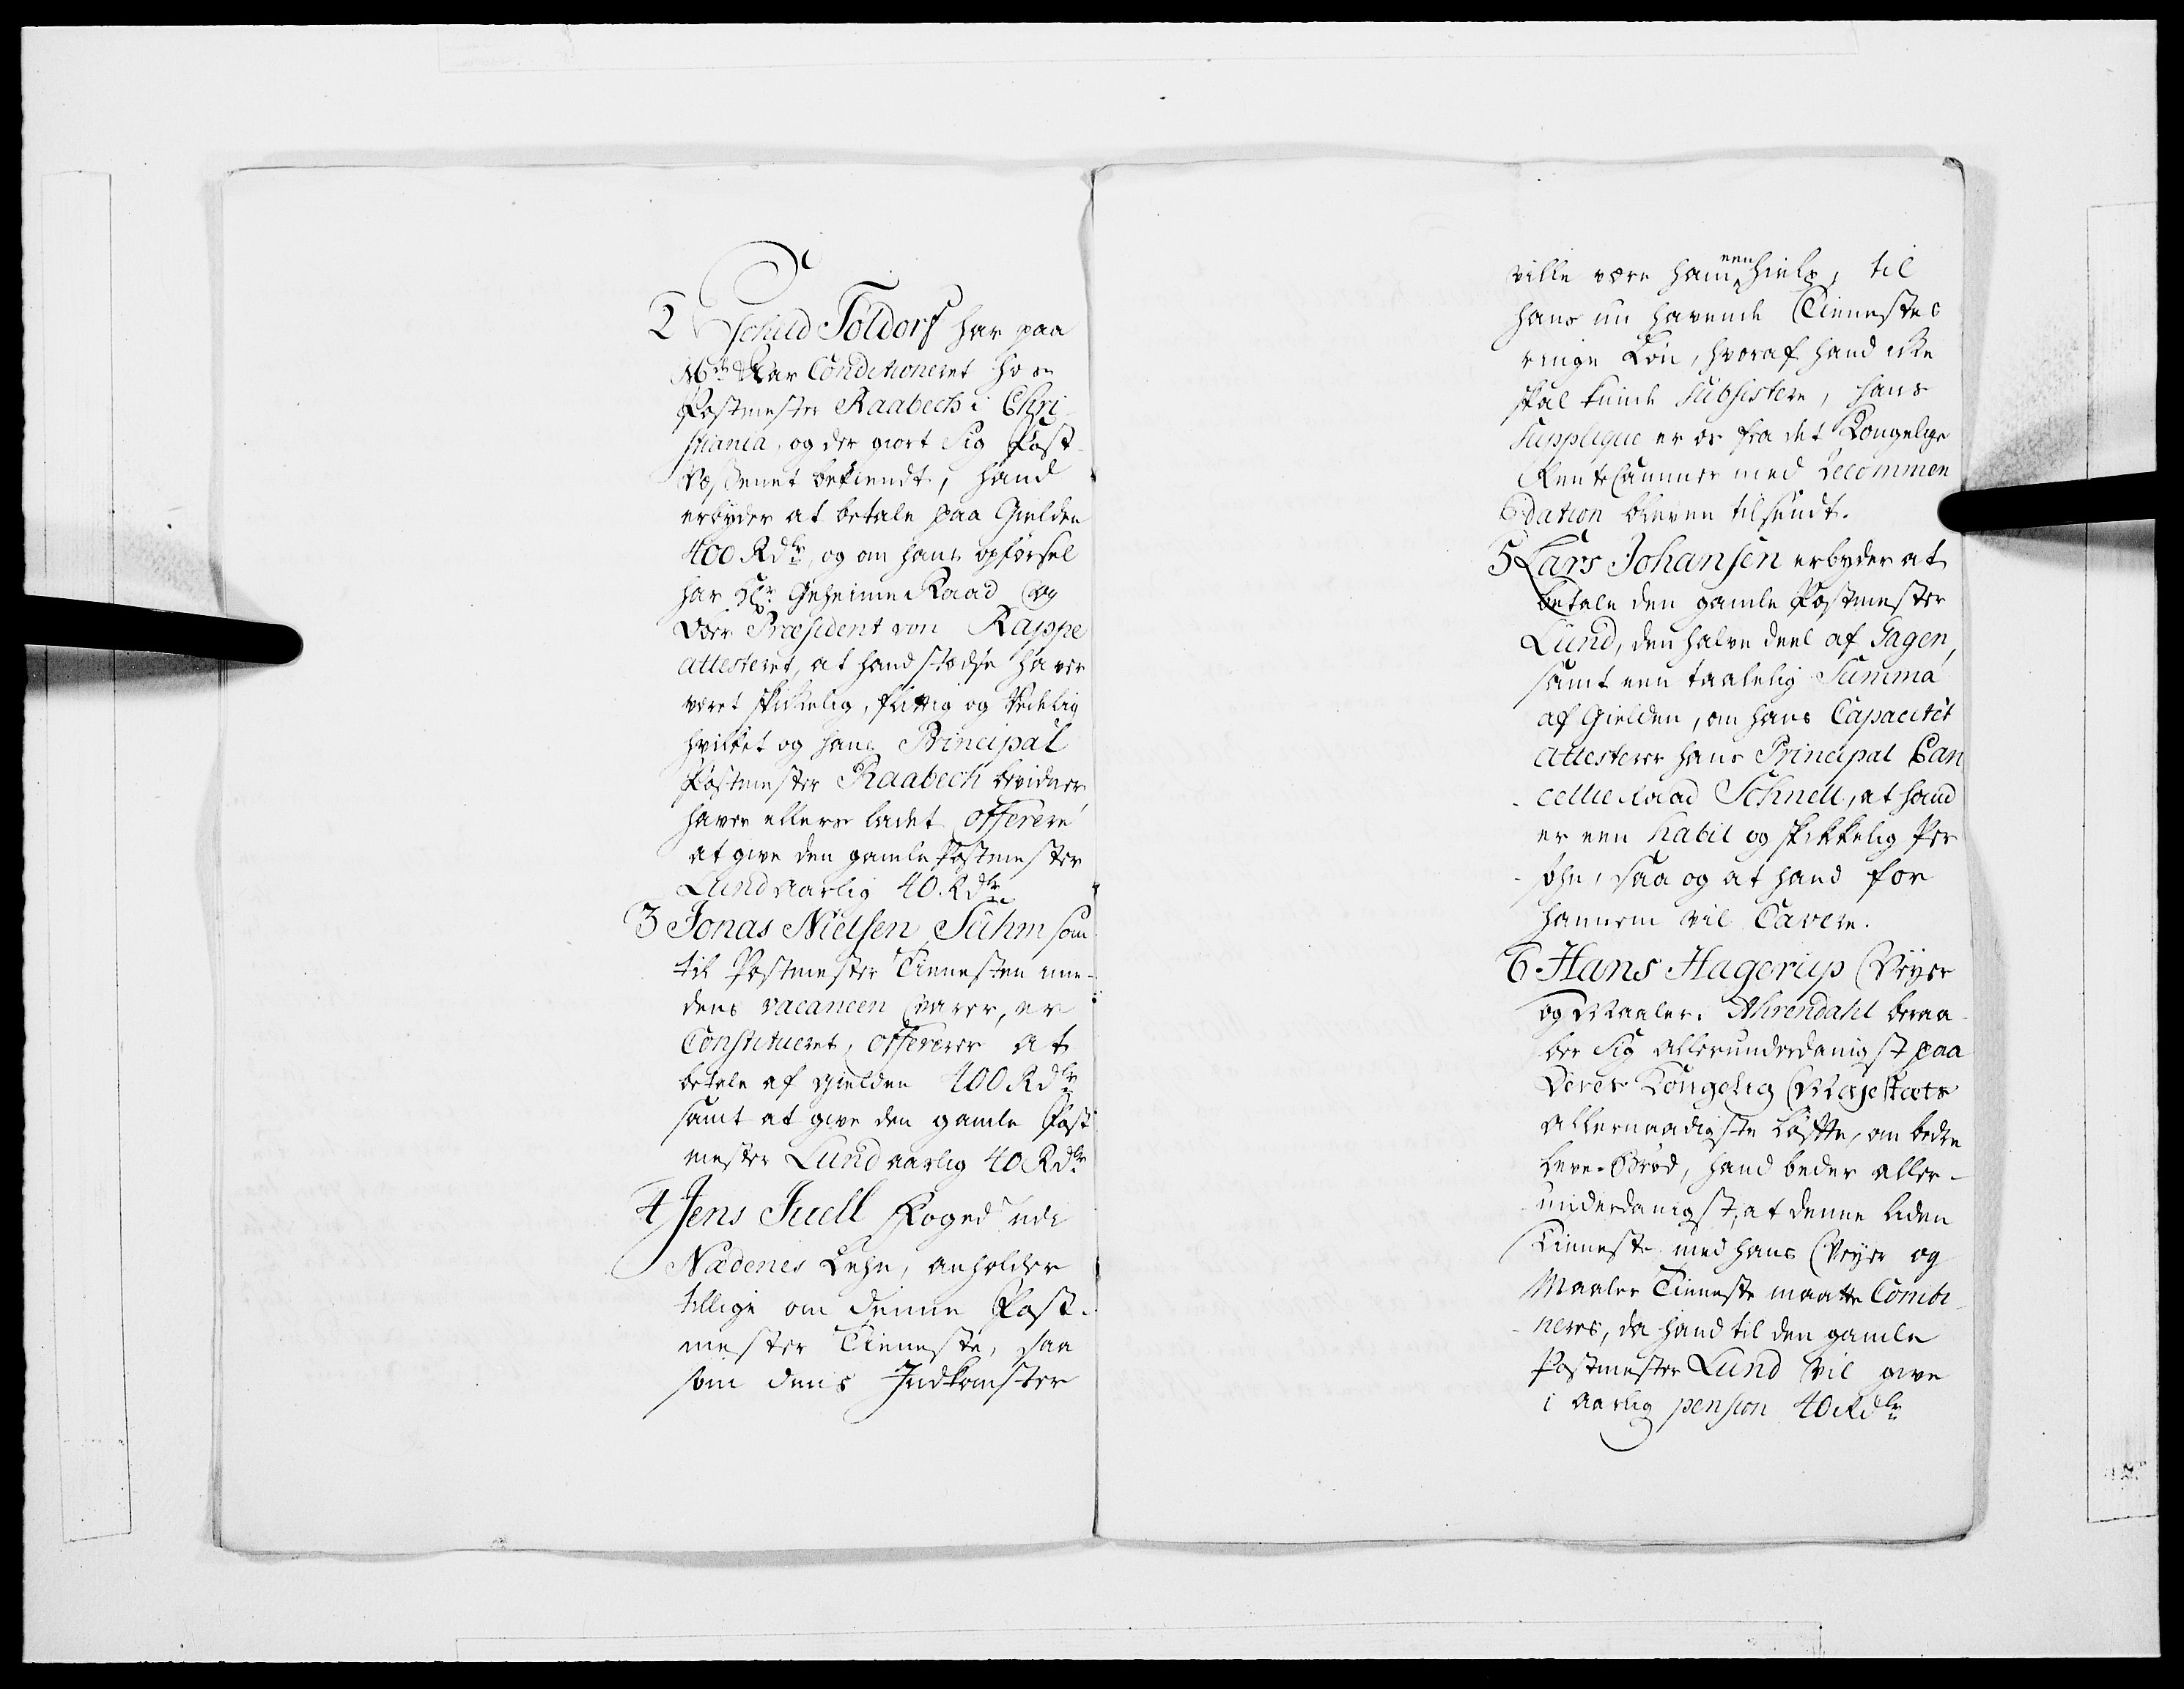 2 Eschild Toldorf har paa
16de Aar Conditioneret hos
Postmester Raabech i Chri
stiania, og der giort sig Post-
Væsenet bekiendt, hand
erbyder at betale paa Gielden
400 Rdlr, og om hans opførsel
har Hr Geheime Raad og
Vice Præsident von Kappe
attesteret, at hand stædse haver
været skikkelig, flittig og Redelig
hvilket og hans Principal
Postmester Raabech bevidner
haver ellers ladet offerere
at give den gamle Postmester
Lund aarlig 40 Rdlr
3 Jonas Nielsen Suhm som
til Postmester Tienesten ime-
dens vacancen varer, er
Constitueret, offererer at
betale af Gielden 400 Rdlr
samt at give den gamle Post
mester Lund aarlig 40 Rdlr
4 Jens Juell Foged udi
Nædenes Lehn, anholder
tillige om denne Post-
mester Tieneste, saa
som dens Indkomster
ville være ham een hielp, til
hans nu havende Tienestes
ringe Løn, hvoraf hand icke
skal kunde subsistere, hans
Supplique er os fra det Kongelige
Rente Cammer med Recommen
dation bleven tilsendt.
5 Lars Johansen erbyder at
betale den gamle Postmester
Lund, den halve deel af Gagen,
samt een taalelig Summa
af Gielden, om hans Capacitet
attesterer hans Principal Can
cellie Raad Schnell, at hand
er een habil og skikkelig Per
sohn, saa og at hand for
hannem vil Cavere.
6 Hans Hagerup Veyer
og Maaler i Ahrendahl beraa
ber sig allerunderdanigst paa
Deres Kongelig Majestæts
allernaadigste Løfte, om bedre
Leve-Brød, hand beder aller-
underdanigst, at denne liden
Tieneste med hans Veyer og
Maaler Tieneste maatte Combi
neres, da hand til den gamle
Postmester Lund vil give
i aarlig pension 40 Rdlr